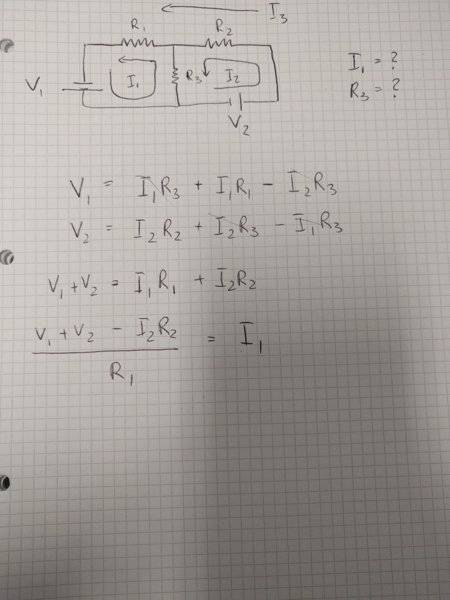 I₃
R₁
R₂
V₁
I₁
R₃
I₂
V₂
I₁ = ?
R₃ = ?
V₁ = I₁R₃ + I₁R₁ - I₂R₃
V₂ = I₂R₂ + I₂R₃ - I₁R₃
V₁ + V₂ = I₁R₁ + I₂R₂
V₁ + V₂ - I₂R₂ = I₁
R₁